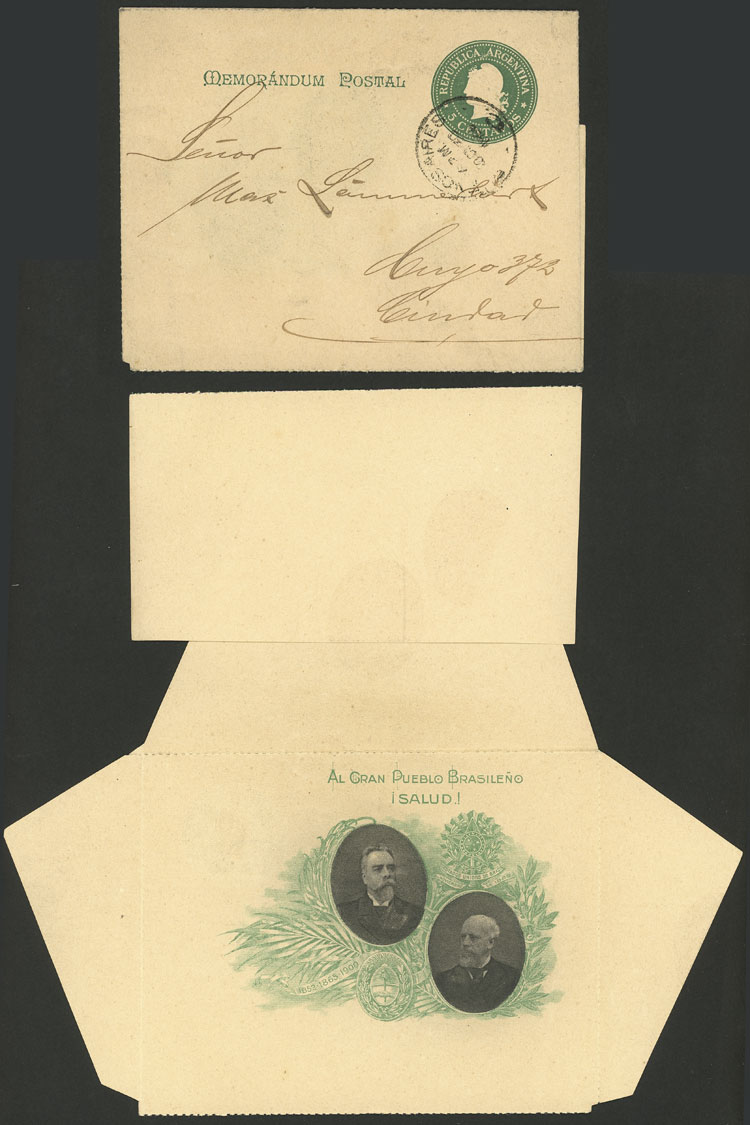 MEMORÁNDUM POSTAL
REPUBLICA ARGENTINA
5 CENTAVOS
Señor
Max
Cuyo 372
Ciudad
AL GRAN PUEBLO BRASILEÑO
¡SALUD!
1852-1865-1900